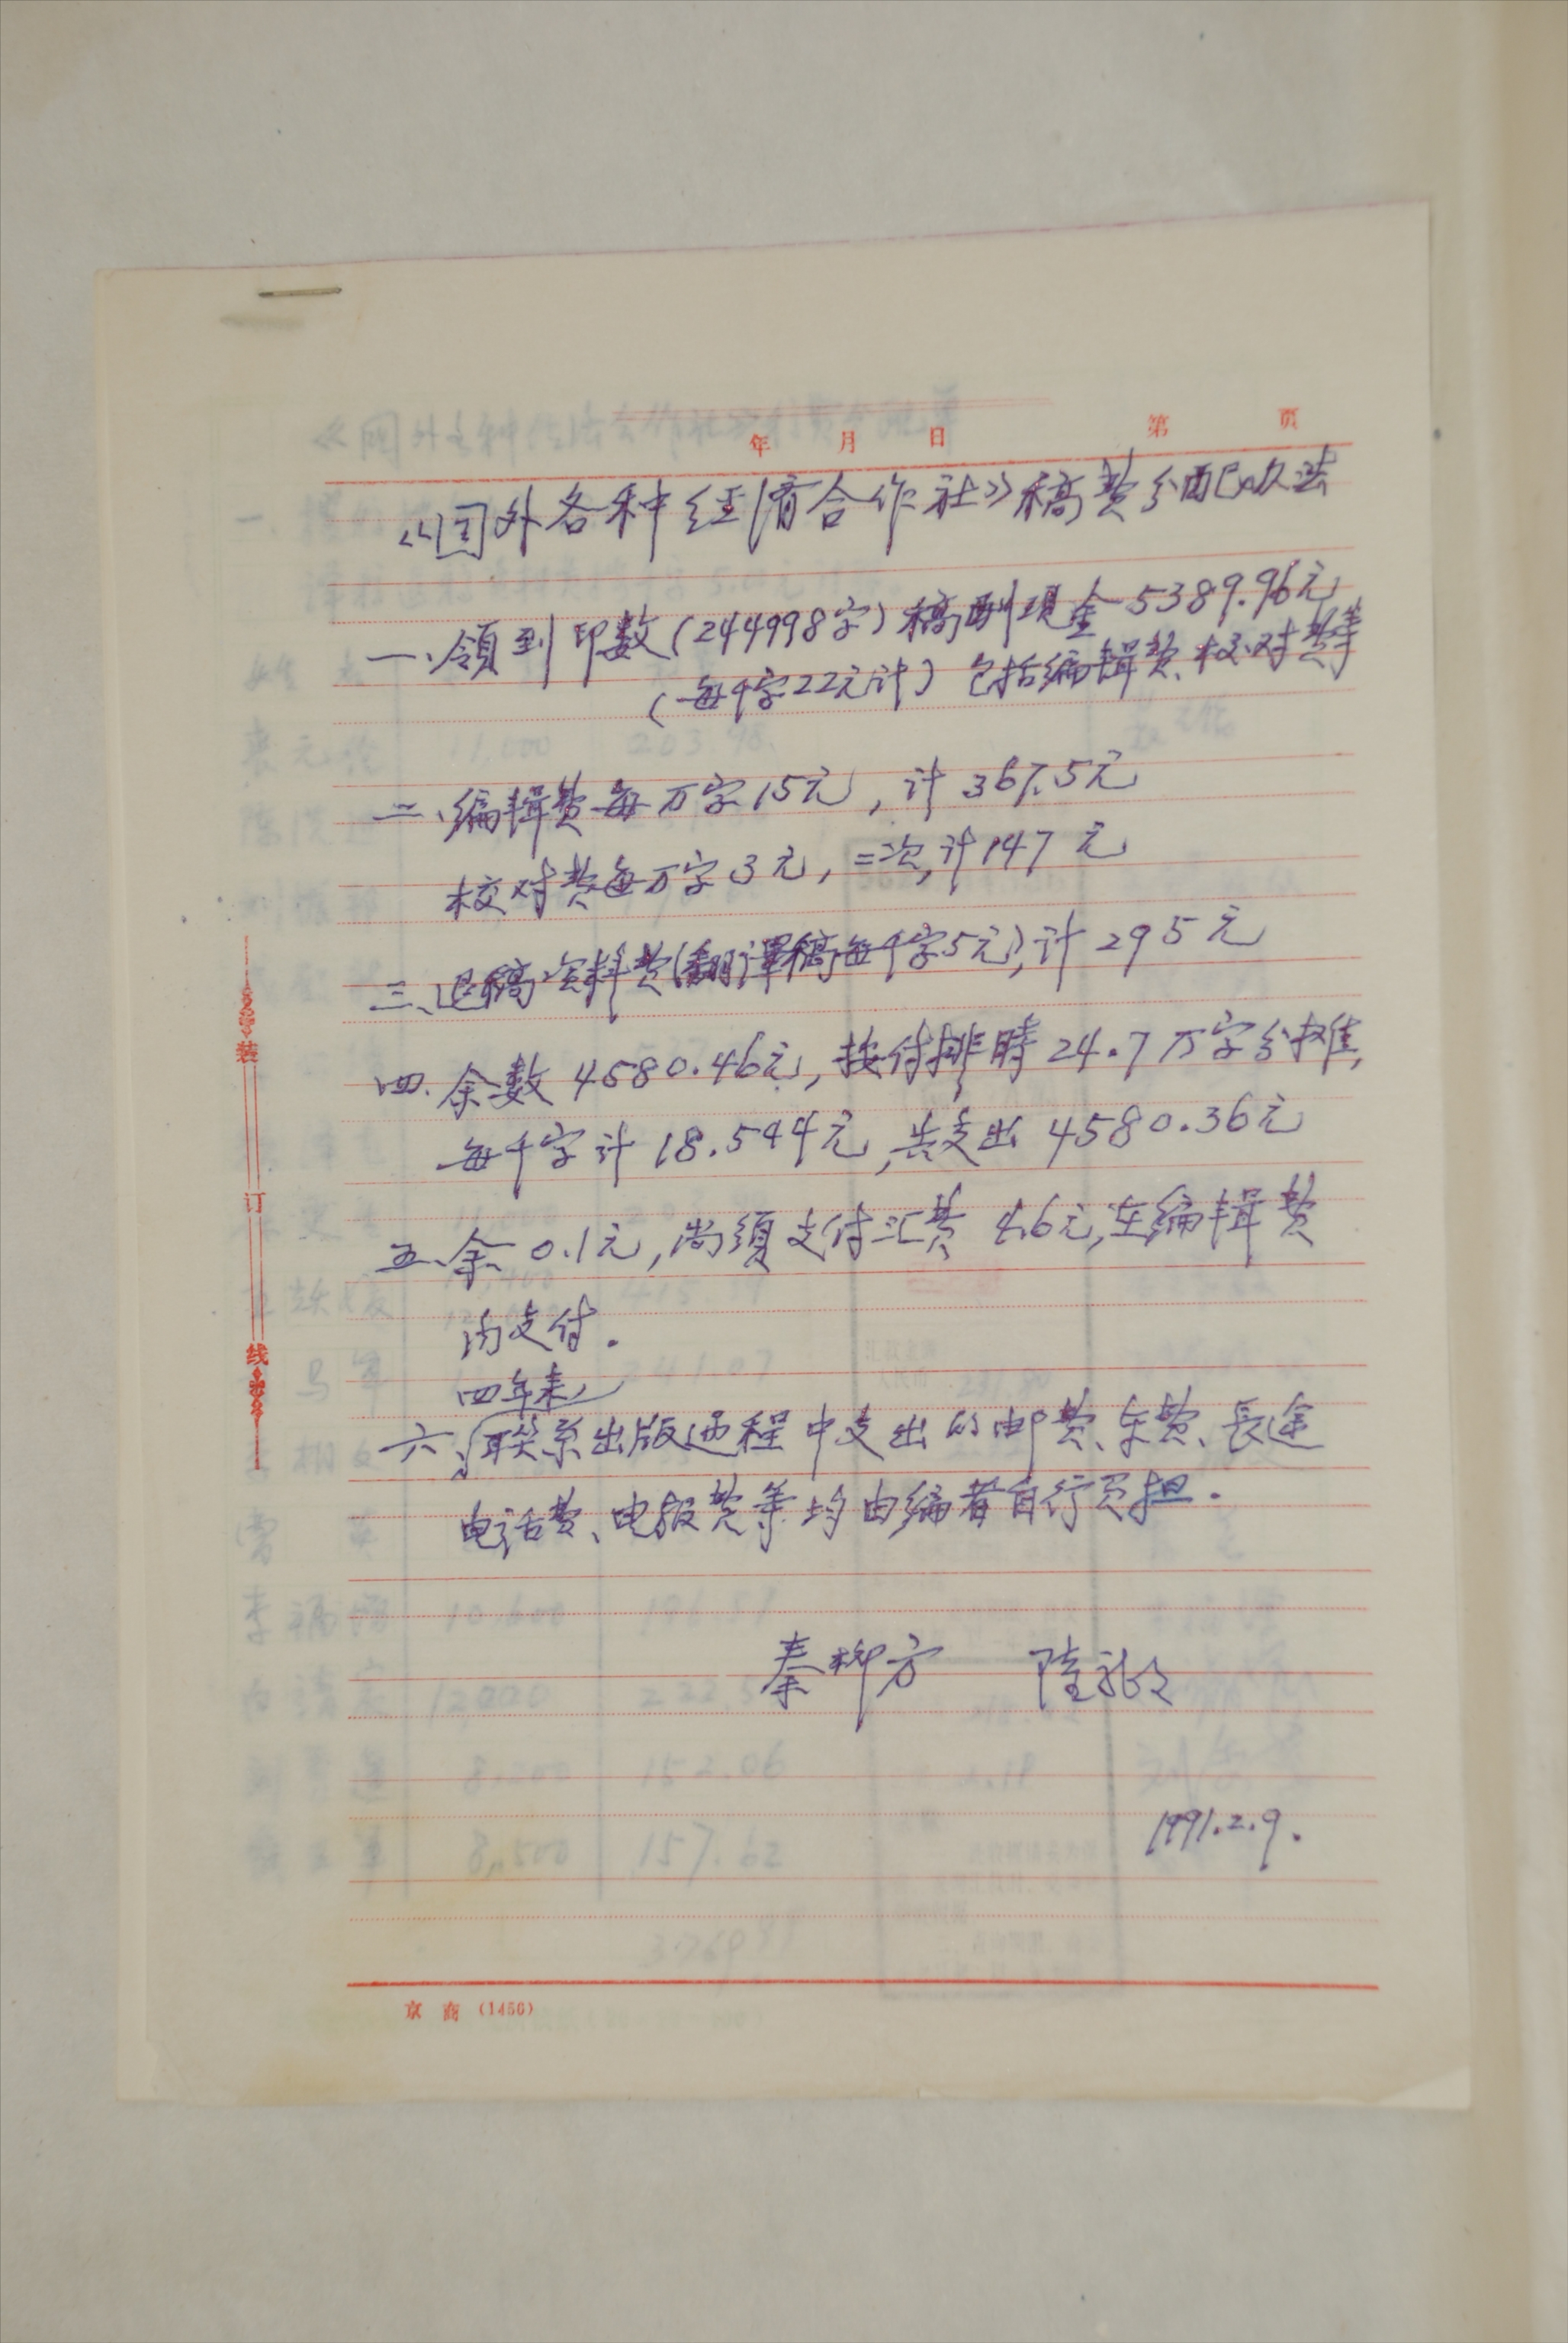 年 月 日 第 页
《国外各种经济合作社》稿费分配办法
一、领到印数(244998字)稿酬现金5389.96元
(每千字22元计)包括编辑费、校对费等
二、编辑费每万字15元,计367.5元
校对费每万字3元,二次,计147元
三、退稿资料费(翻译稿每千字5元),计295元
四、余数4580.46元,按付排時24.7万字分摊,
每千字计18.544元,共支出4580.36元
五、余0.1元,尚须支付汇费4.6元,在编辑费
内支付.
四年来
六、联系出版过程中支出的邮费、车费、長途
电话费、电报费等均由编者自行负担.
秦柳方 陆
1991.2.9.
装
订
线
京 商 (1456)